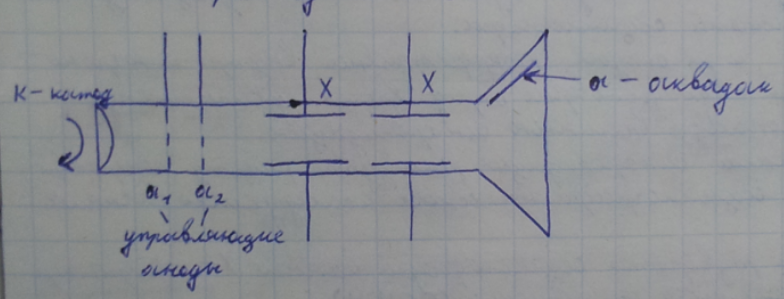 К-катод
X
X
а - аквадак
а₁ а₂
управляющие
аноды